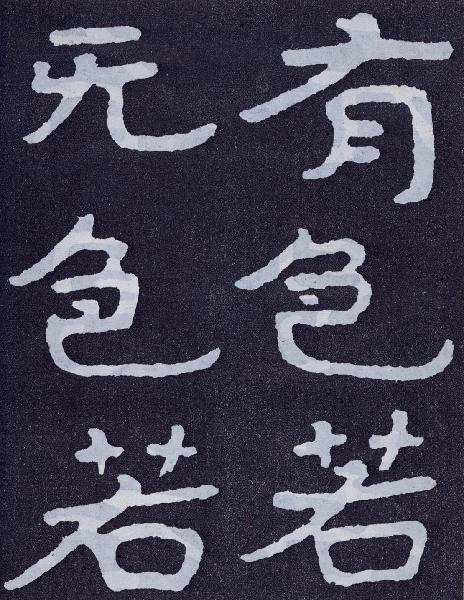 有色若
无色若